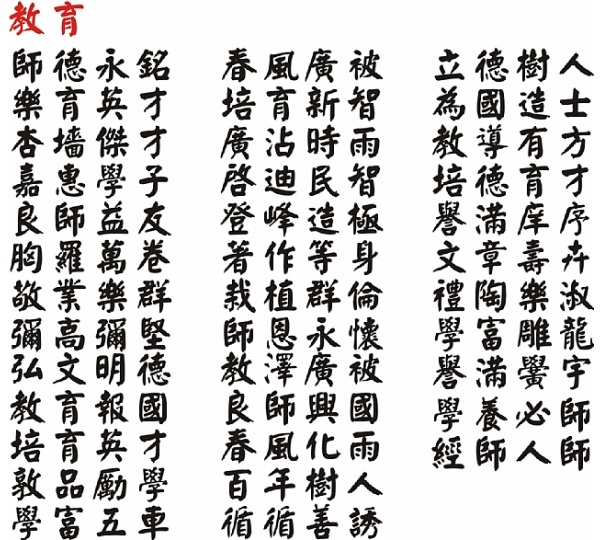 教育
師德永銘
樂育英才
杏墻傑才
嘉惠學子
良師益友
胸羅萬卷
敬業樂群
彌高彌堅
弘文明德
教育報國
培育英才
敦品勵學
學富五車
春風廣被
培育新智
廣沾時雨
啓迪民智
登峰造極
著作等身
栽植群倫
師恩永懷
教澤廣被
良師興國
春風化雨
百年樹人
循循善誘
立德樹人
為國造士
教導有方
培德育才
譽滿庠序
文章壽卉
禮陶樂淑
學富雕龍
譽滿黌宇
學養必師
經師人師